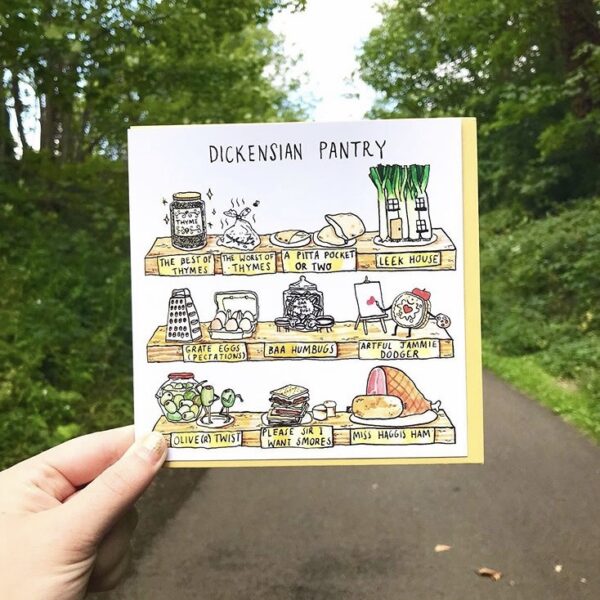 DICKENSIAN PANTRY
THYME
THE BEST OF
THYMES
THE WORST OF
THYMES
A PITTA POCKET
OR TWO
LEEK HOUSE
GRATE EGGS
(PECTATIONS)
BAA HUMBUGS
ARTFUL JAMMIE
DODGER
OLIVE(R) TWIST
PLEASE SIR I
WANT SMORES
MISS HAGGIS HAM